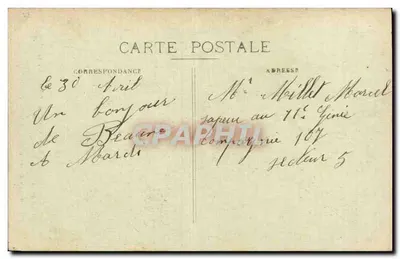 CARTE POSTALE
CORRESPONDANCE
Le 30 Avril
Un bonjour
de Beaune
A Mardi
ADRESSE
Mr Millet Marcel
sapeur au 11e Génie
Compagnie 107
secteur 5
CPAPHIL